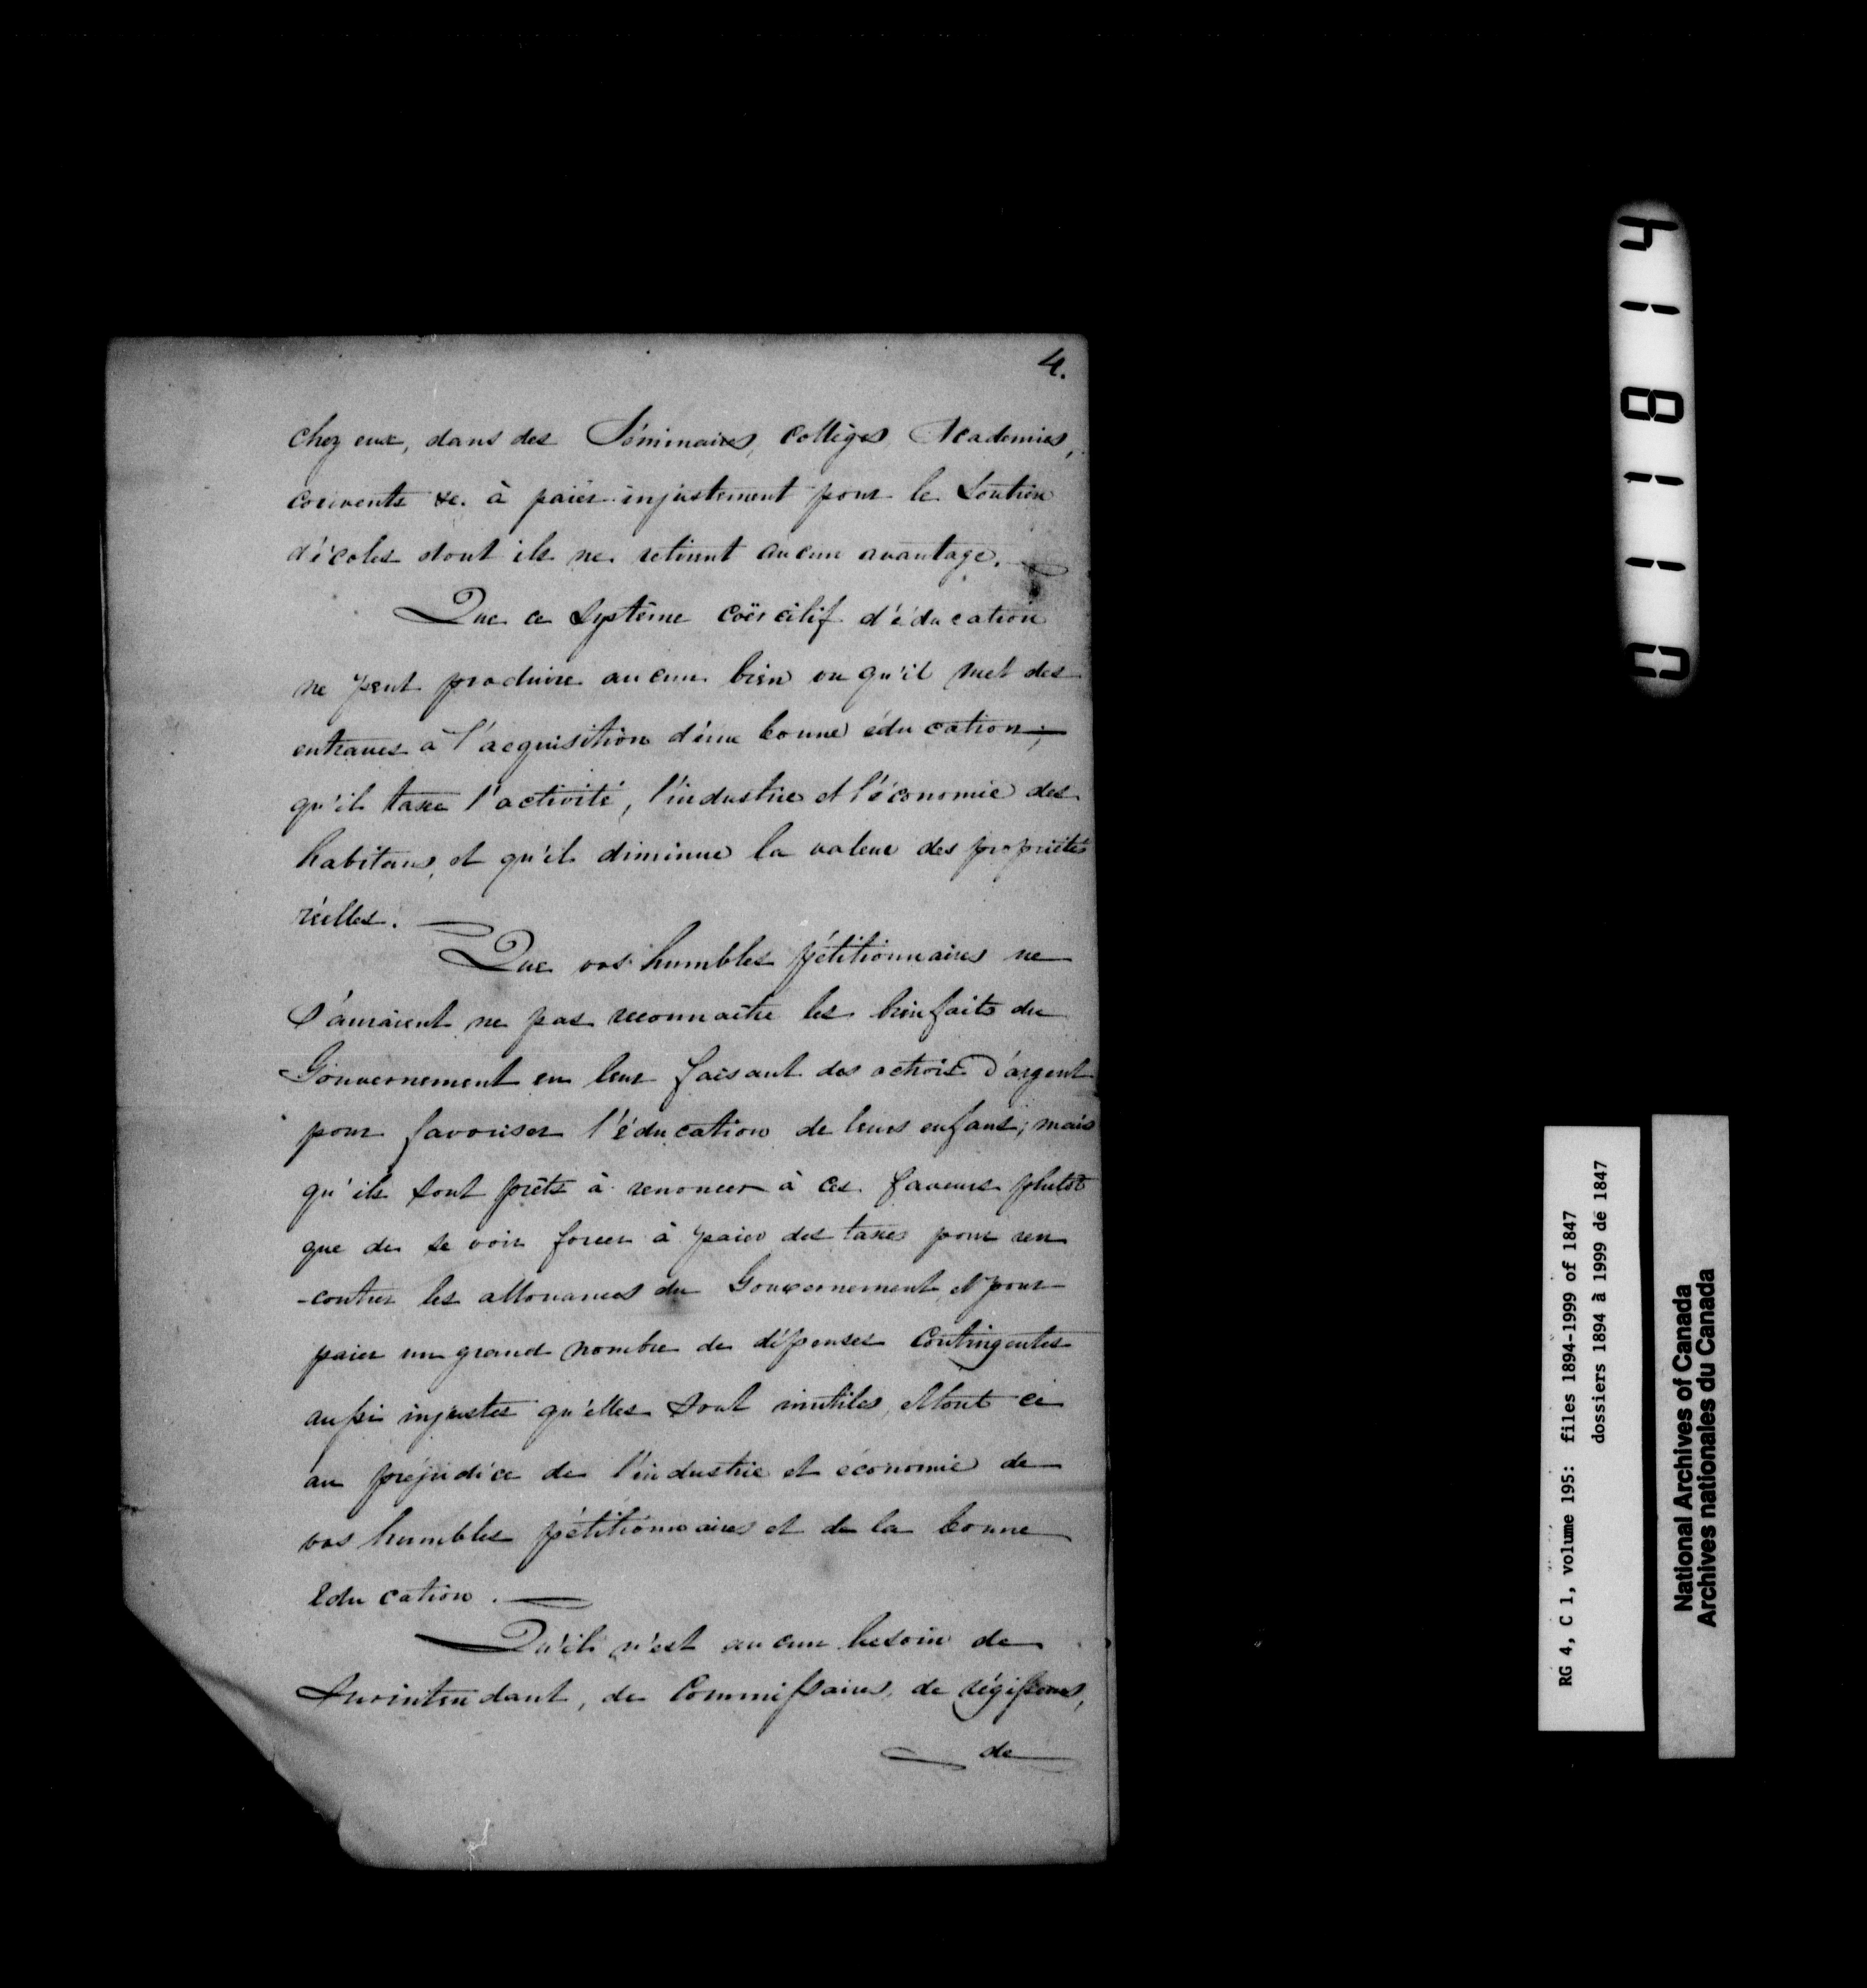 4.
chez eux, dans des Séminaires, collèges, Académies,
couvents &c. à paiër injustement pour le soutien
d'écoles dont ils ne retirent aucun avantage.
Que ce système coërcitif d'éducation
ne peut produire aucun bien vu qu'il met des
entraves à l'acquisition d'une bonne éducation;
qu'il taxe l'activité, l'industrie et l'économie des
habitans, et qu'il diminue la valeur des propriétés
réelles.
Que vos humbles pétitionnaires ne
s'auraient ne pas reconnaître les bienfaits du
Gouvernement en leur faisant des octrois d'argent
pour favoriser l'éducation de leurs enfans; mais
qu'ils sont prêts à renoncer à ces faveurs plutôt
que de se voir forcer à paier des taxes pour ren
-contrer les allouances du Gouvernement et pour
paier un grand nombre de dépenses contingentes
aussi injustes qu'elles sont inutiles, et tout ci
au préjudice de l'industrie et économie de
vos humbles pétitionnaires et de la bonne
éducation.
Qu'il n'est aucun besoin de
Surintendant, de Commissaires, de régisseurs,
de
011814
RG 4, C 1, volume 195: files 1894-1999 of 1847
dossiers 1894 à 1999 de 1847
National Archives of Canada
Archives nationales du Canada